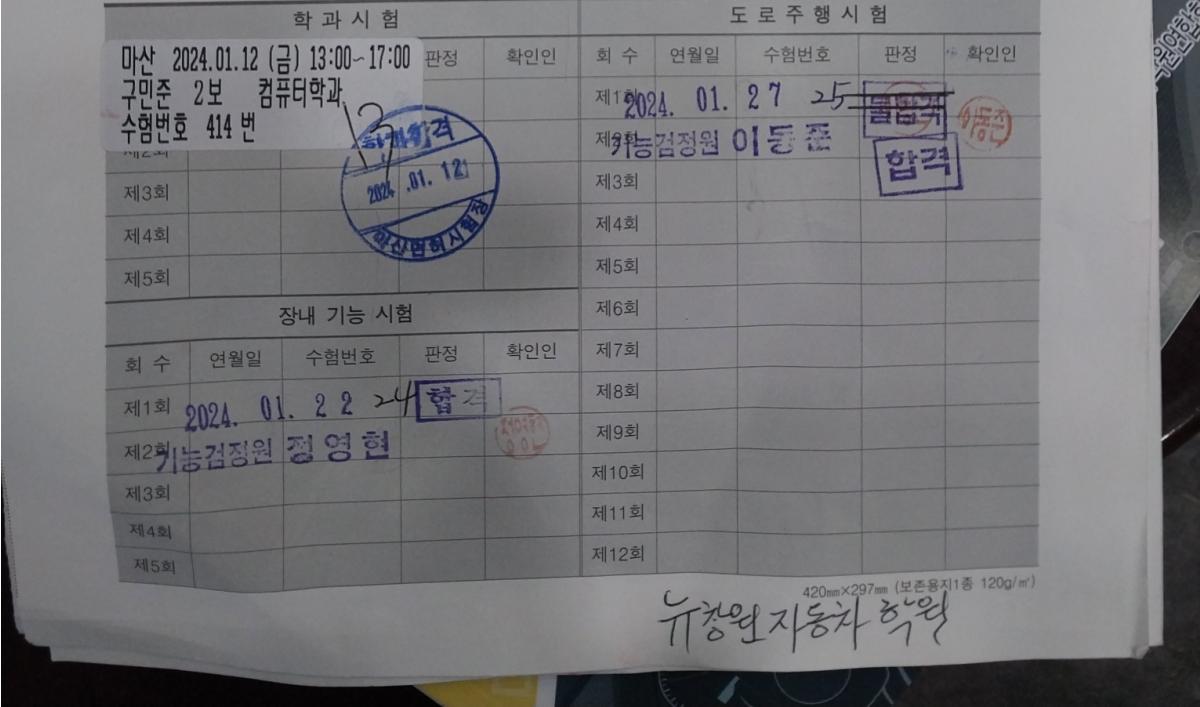 학 과 시 험
마산 2024.01.12 (금) 13:00~17:00
구민준 2보 컴퓨터학과
수험번호 414 번
판정 확인인
제2회
제3회
제4회
제5회
학과합격
2024.01.12
마산면허시험장
장내 기능 시험
회 수 연월일 수험번호 판정 확인인
제1회 2024. 01. 22 24 합격
제2회 기능검정원 정영현
제3회
제4회
제5회
도 로 주 행 시 험
회 수 연월일 수험번호 판정 확인인
제1회 2024. 01. 27 25 불합격
이동준
제2회 기능검정원 이동준
합격
제3회
제4회
제5회
제6회
제7회
제8회
제9회
제10회
제11회
제12회
420㎜×297㎜ (보존용지1종 120g/㎡)
뉴창원자동차 학원